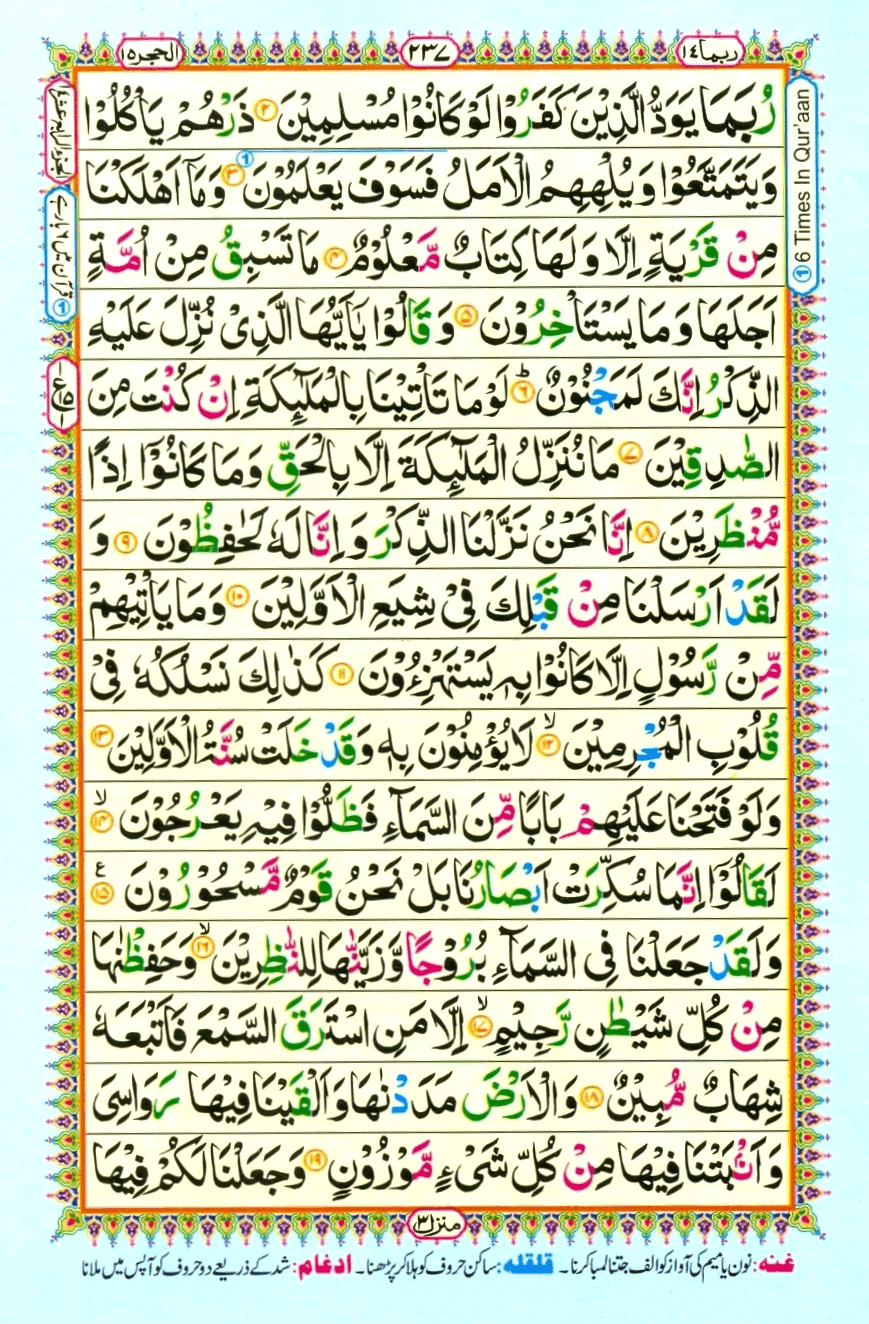 ربما ١٤
٢٣٧
الحجر ١٥
رُبَمَا يَوَدُّ الَّذِيْنَ كَفَرُوْا لَوْ كَانُوْا مُسْلِمِيْنَ ۝٢ ذَرْهُمْ يَاْكُلُوْا
وَيَتَمَتَّعُوْا وَيُلْهِهِمُ الْاَمَلُ فَسَوْفَ يَعْلَمُوْنَ ۝٣ وَمَاۤ اَهْلَكْنَا
مِنْ قَرْيَةٍ اِلَّا وَلَهَا كِتَابٌ مَّعْلُوْمٌ ۝٤ مَا تَسْبِقُ مِنْ اُمَّةٍ
اَجَلَهَا وَمَا يَسْتَاْخِرُوْنَ ۝٥ وَقَالُوْا يٰۤاَيُّهَا الَّذِيْ نُزِّلَ عَلَيْهِ
الذِّكْرُ اِنَّكَ لَمَجْنُوْنٌ ۝٦ؕ لَوْ مَا تَاْتِيْنَا بِالْمَلٰٓئِكَةِ اِنْ كُنْتَ مِنَ
الصّٰدِقِيْنَ ۝٧ مَا نُنَزِّلُ الْمَلٰٓئِكَةَ اِلَّا بِالْحَقِّ وَمَا كَانُوْۤا اِذًا
مُّنْظَرِيْنَ ۝٨ اِنَّا نَحْنُ نَزَّلْنَا الذِّكْرَ وَاِنَّا لَهٗ لَحٰفِظُوْنَ ۝٩ وَ
لَقَدْ اَرْسَلْنَا مِنْ قَبْلِكَ فِيْ شِيَعِ الْاَوَّلِيْنَ ۝١٠ وَمَا يَاْتِيْهِمْ
مِّنْ رَّسُوْلٍ اِلَّا كَانُوْا بِهٖ يَسْتَهْزِءُوْنَ ۝١١ كَذٰلِكَ نَسْلُكُهٗ فِيْ
قُلُوْبِ الْمُجْرِمِيْنَ ۝١٢ۙ لَا يُؤْمِنُوْنَ بِهٖ وَقَدْ خَلَتْ سُنَّةُ الْاَوَّلِيْنَ ۝١٣
وَلَوْ فَتَحْنَا عَلَيْهِمْ بَابًا مِّنَ السَّمَآءِ فَظَلُّوْا فِيْهِ يَعْرُجُوْنَ ۝١٤ۙ
لَقَالُوْۤا اِنَّمَا سُكِّرَتْ اَبْصَارُنَا بَلْ نَحْنُ قَوْمٌ مَّسْحُوْرُوْنَ ۝١٥ ع
وَلَقَدْ جَعَلْنَا فِي السَّمَآءِ بُرُوْجًا وَّزَيَّنّٰهَا لِلنّٰظِرِيْنَ ۝١٦ۙ وَحَفِظْنٰهَا
مِنْ كُلِّ شَيْطٰنٍ رَّجِيْمٍ ۝١٧ۙ اِلَّا مَنِ اسْتَرَقَ السَّمْعَ فَاَتْبَعَهٗ
شِهَابٌ مُّبِيْنٌ ۝١٨ وَالْاَرْضَ مَدَدْنٰهَا وَاَلْقَيْنَا فِيْهَا رَوَاسِيَ
وَاَنْۢبَتْنَا فِيْهَا مِنْ كُلِّ شَيْءٍ مَّوْزُوْنٍ ۝١٩ وَجَعَلْنَا لَكُمْ فِيْهَا
① 6 Times In Qur'aan
منزل ٣
غنہ: نون یا میم کی آواز کو الف جتنا لمبا کرنا۔ قلقلہ: ساکن حروف کو ہلا کر پڑھنا۔ ادغام: شد کے ذریعے دو حروف کو آپس میں ملانا